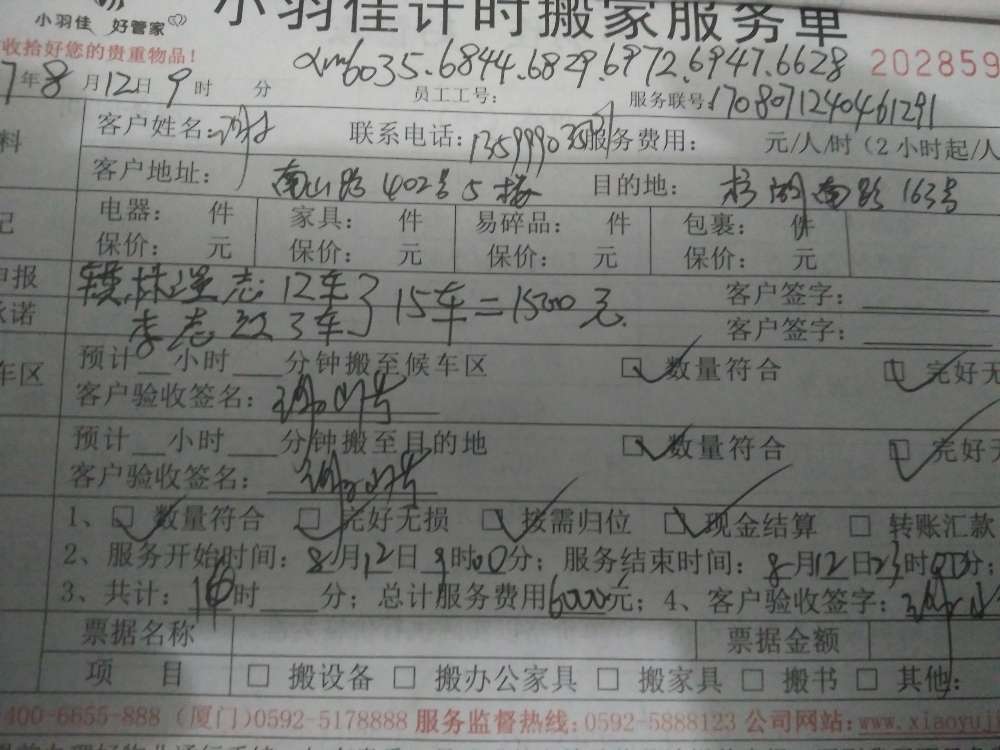 小羽佳 好管家
小羽佳计时搬家服务单
收拾好您的贵重物品!
xm6035.6844.6829.6972.6947.6628 202859
7年8月12日9时 分 员工工号: 服务联号:170807124046 1291
客户姓名: 联系电话: 服务费用: 元/人/时(2小时起/人
客户地址: 南山路402号5楼 目的地: 南路163号
电器: 件 家具: 件 易碎品: 件 包裹: 件
保价: 元 保价: 元 保价: 元 保价: 元
申报 12车 15车=15300元 客户签字:
承诺 李志 3车 客户签字:
车区 预计 小时 分钟搬至候车区 数量符合 完好无
客户验收签名:
预计 小时 分钟搬至目的地 数量符合 完好无
客户验收签名:
1、 数量符合 完好无损 按需归位 现金结算 转账汇款
2、服务开始时间:8月12日9时00分;服务结束时间:8月12日23时00分;
3、共计: 时 分;总计服务费用6000元;4、客户验收签字:
票据名称 票据金额
项 目 搬设备 搬办公家具 搬家具 搬书 其他:
400-6655-888 (厦门)0592-5178888 服务监督热线:0592-5888123 公司网站:www.xiaoyuj